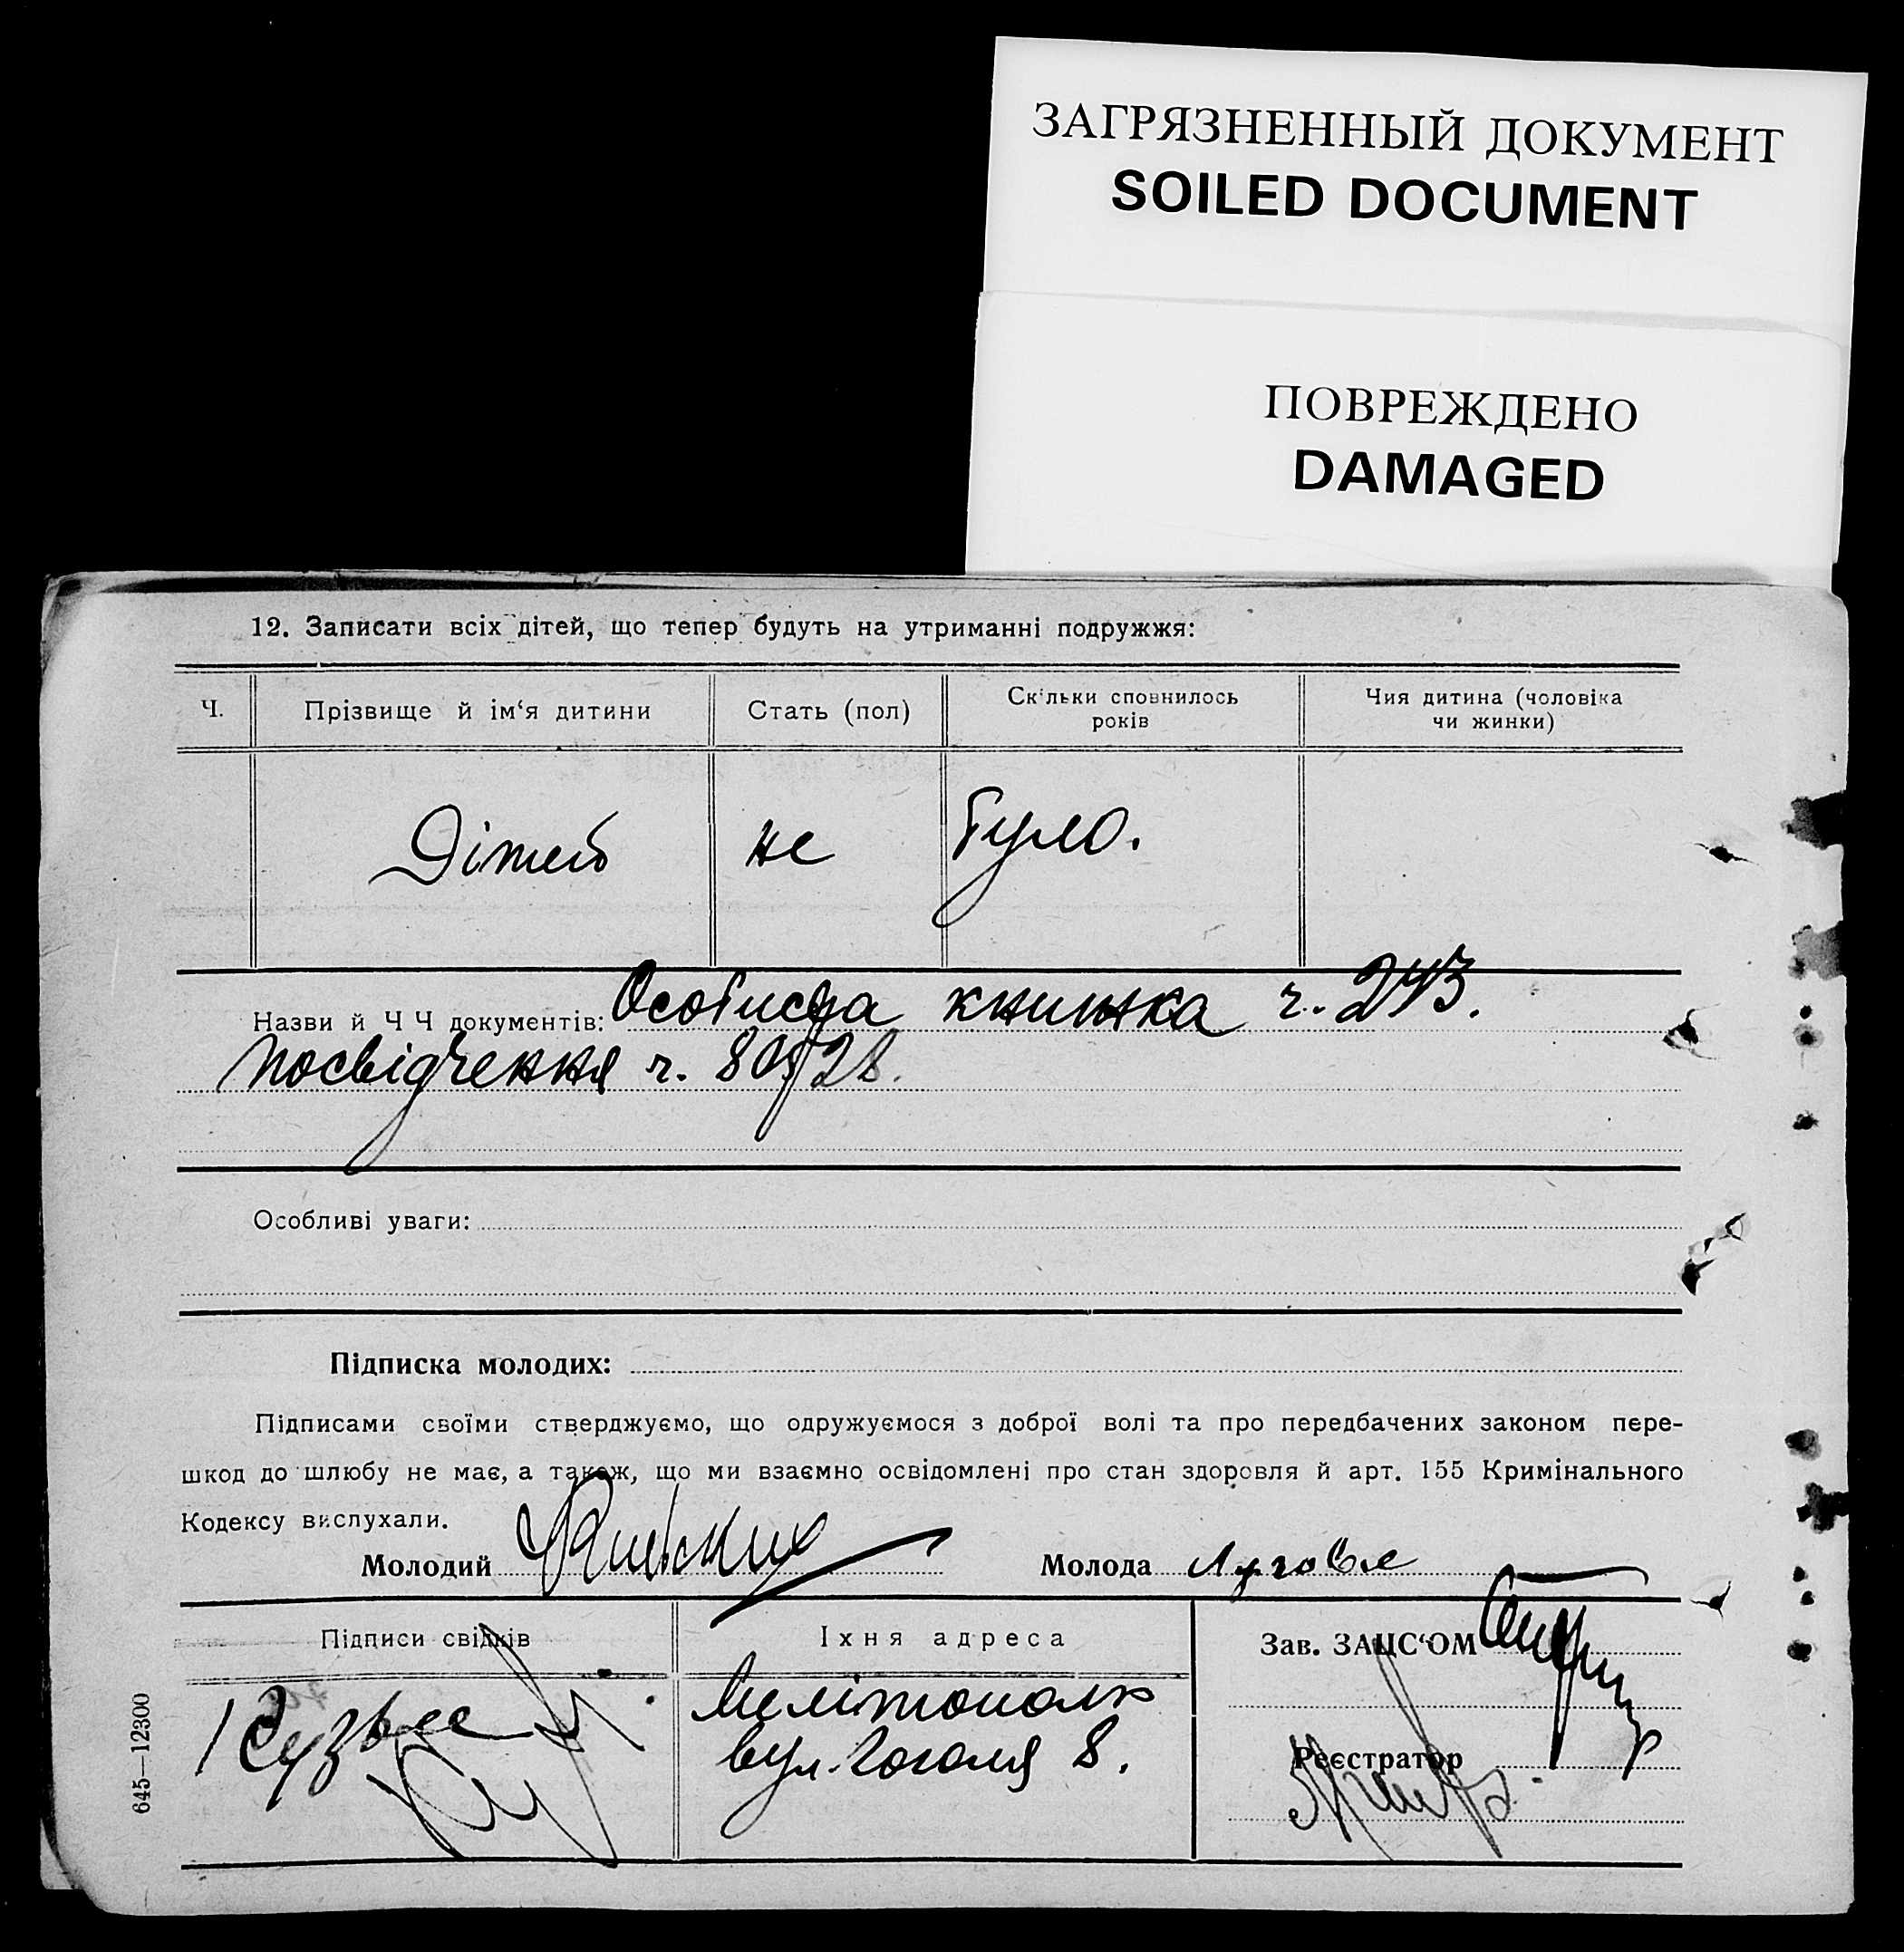 ЗАГРЯЗНЕННЫЙ ДОКУМЕНТ
SOILED DOCUMENT
ПОВРЕЖДЕНО
DAMAGED
12. Записати всіх дітей, що тепер будуть на утриманні подружжя:
Ч.
Прізвище й ім‘я дитини
Стать (пол)
Скільки сповнилось
років
Чия дитина (чоловіка
чи жинки)
Дітей не було.
Назви й Ч Ч документів: Особиста книжка ч. 243.
посвідчення ч. 805/28.
Особливі уваги:
Підписка молодих:
Підписами своїми стверджуємо, що одружуємося з доброї волі та про передбачених законом пере-
шкод до шлюбу не має, а також, що ми взаємно освідомлені про стан здоровля й арт. 155 Кримінального
Кодексу вислухали.
Молодий
Молода Лугова
Підписи свідків
Їхня адреса
Зав. ЗАЦС‘ОМ
1
Мелітополь
вул. Гоголя 8.
Реєстратор
645—12300